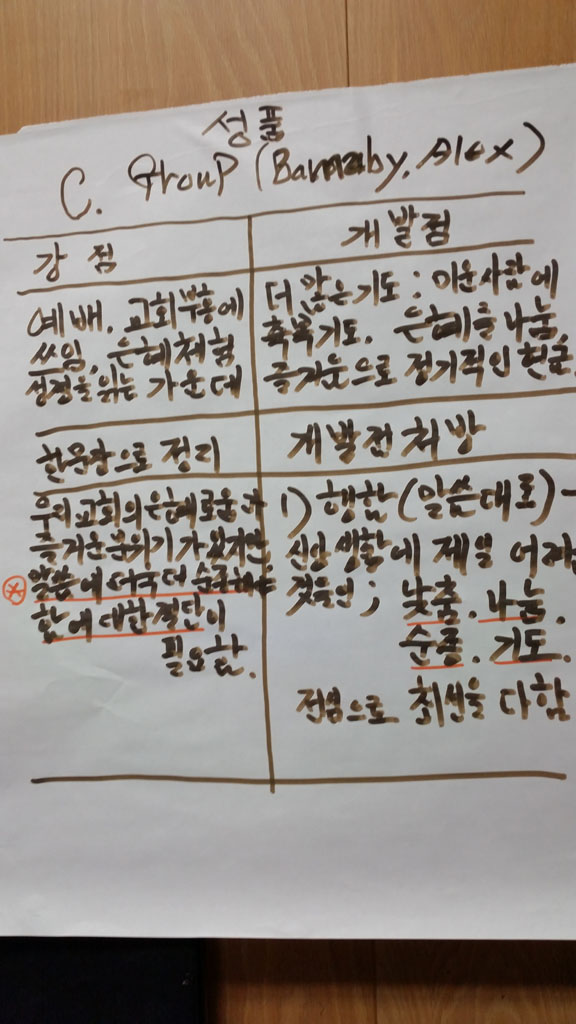 성품
C. Group (Barnaby, Alex)
강점
예배. 교회부흥에
쓰임, 은혜체험
성경을 읽는 가운데
개발점
더 많은기도 : 미운사람에
축복기도. 은혜를 나눔,
즐거운으로 정기적인 헌금.
한문장으로 정리
우리교회의은혜로움과
즐거운분위기가
말씀에 더욱더
함에대한결단이
필요함.
개발전처방
1) 행함(말씀대로) -
신앙생활에 제일
것들인 ; 낮춤. 나눔.
순종. 기도.
전심으로 최선을 다함